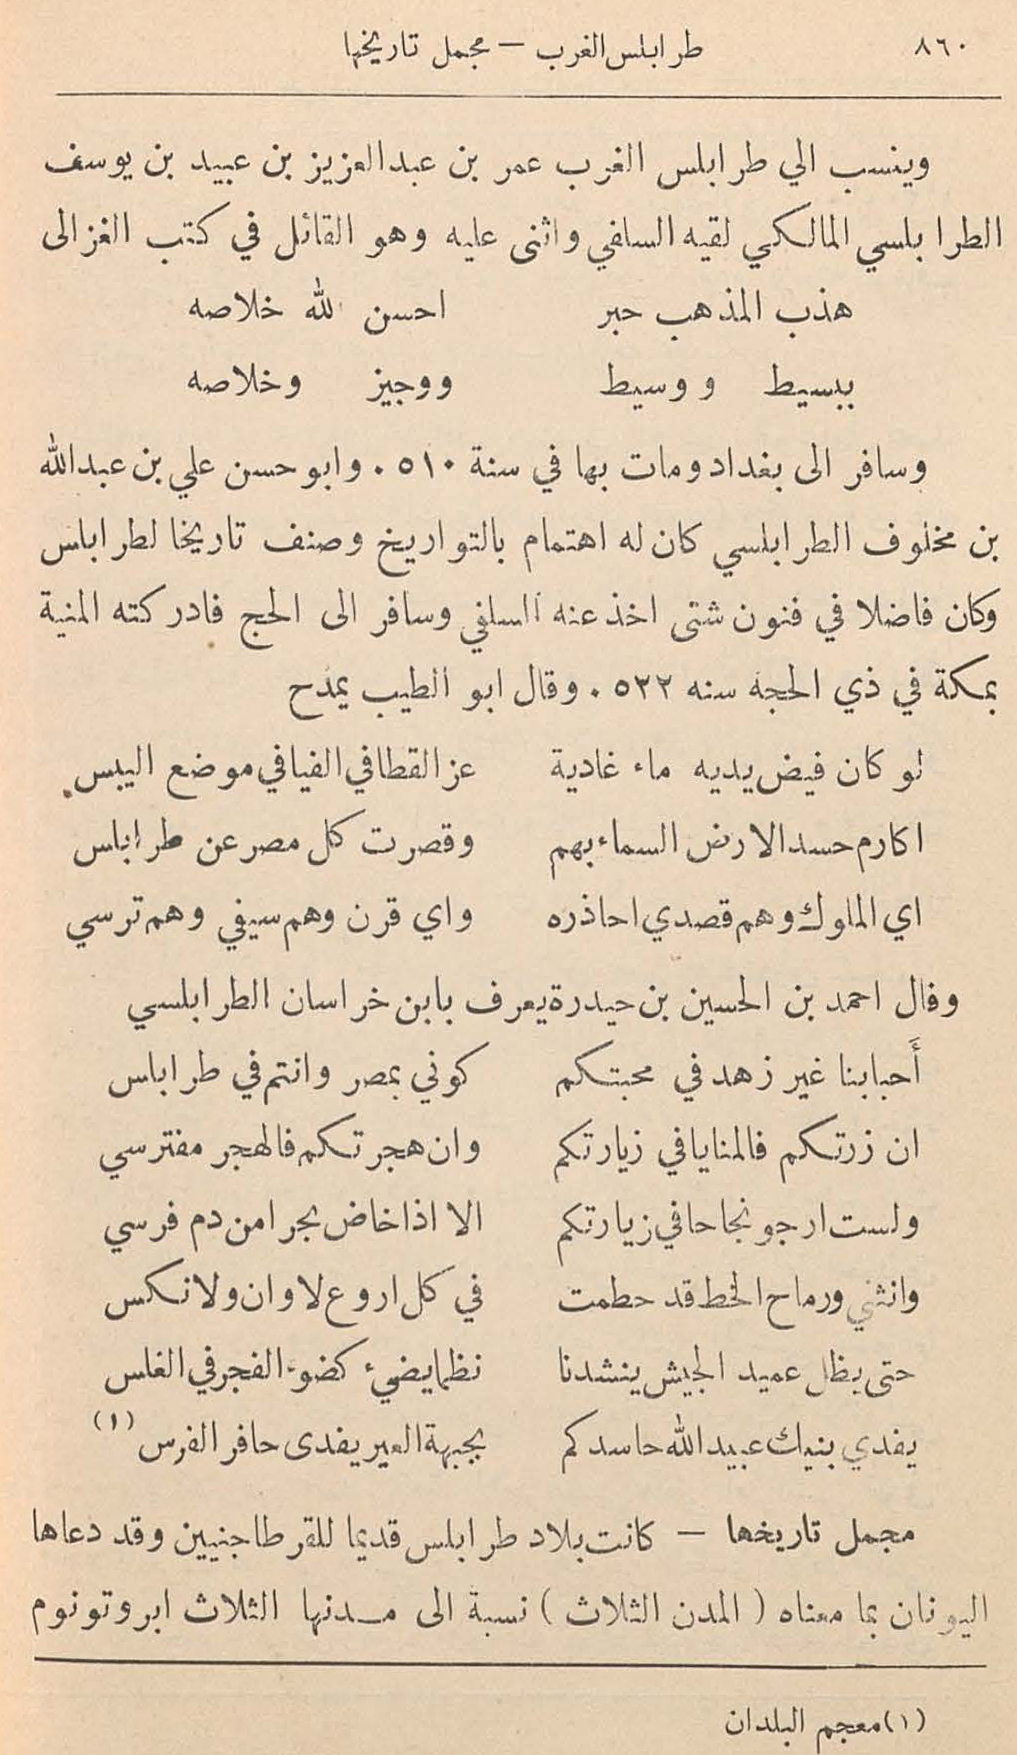 ٨٦٠ طرابلس الغرب – مجمل تاريخها
وينسب الي طرابلس الغرب عمر بن عبد العزيز بن عبيد بن يوسف
الطرابلسي المالكي لقيه السلفي واثنى عليه وهو القائل في كتب الغزالى
هذب المذهب حبر احسن لله خلاصه
ببسيط ووسيط ووجيز وخلاصه
وسافر الى بغداد ومات بها في سنة ٥١٠ . وابو حسن علي بن عبد الله
بن مخلوف الطرابلسي كان له اهتمام بالتواريخ وصنف تاريخا لطرابلس
وكان فاضلا في فنون شتى اخذ عنه السلفي وسافر الى الحج فادركته المنية
بمكة في ذي الحجة سنه ٥٢٢ . وقال ابو الطيب يمدح
لو كان فيض يديه ماء غادية عز القطا في الفيافي موضع اليبس
اكارم حسد الارض السماء بهم وقصرت كل مصر عن طرابلس
اي الملوك وهم قصدي احاذره واي قرن وهم سيفي وهم ترسي
وقال احمد بن الحسين بن حيدرة يعرف بابن خراسان الطرابلسي
أَحبابنا غير زهد في محبتكم كوني بمصر وانتم في طرابلس
ان زرتكم فالمنايا في زيارتكم وان هجرتكم فالهجر مفترسي
ولست ارجو نجاحا في زيارتكم الا اذا خاض بحرا من دم فرسي
وانثني ورماح الخط قد حطمت في كل اروع لا وان ولا نكس
حتى يظل عميد الجيش ينشدنا نظما يضيء كضوء الفجر في الغلس
يفدي بنيك عبيد الله حاسدكم بجبهة العير يفدى حافر الفرس (١)
مجمل تاريخها – كانت بلاد طرابلس قديما للقرطاجنيين وقد دعاها
اليونان بما معناه ( المدن الثلاث ) نسبة الى مدنها الثلاث ابروتونوم
(١) معجم البلدان